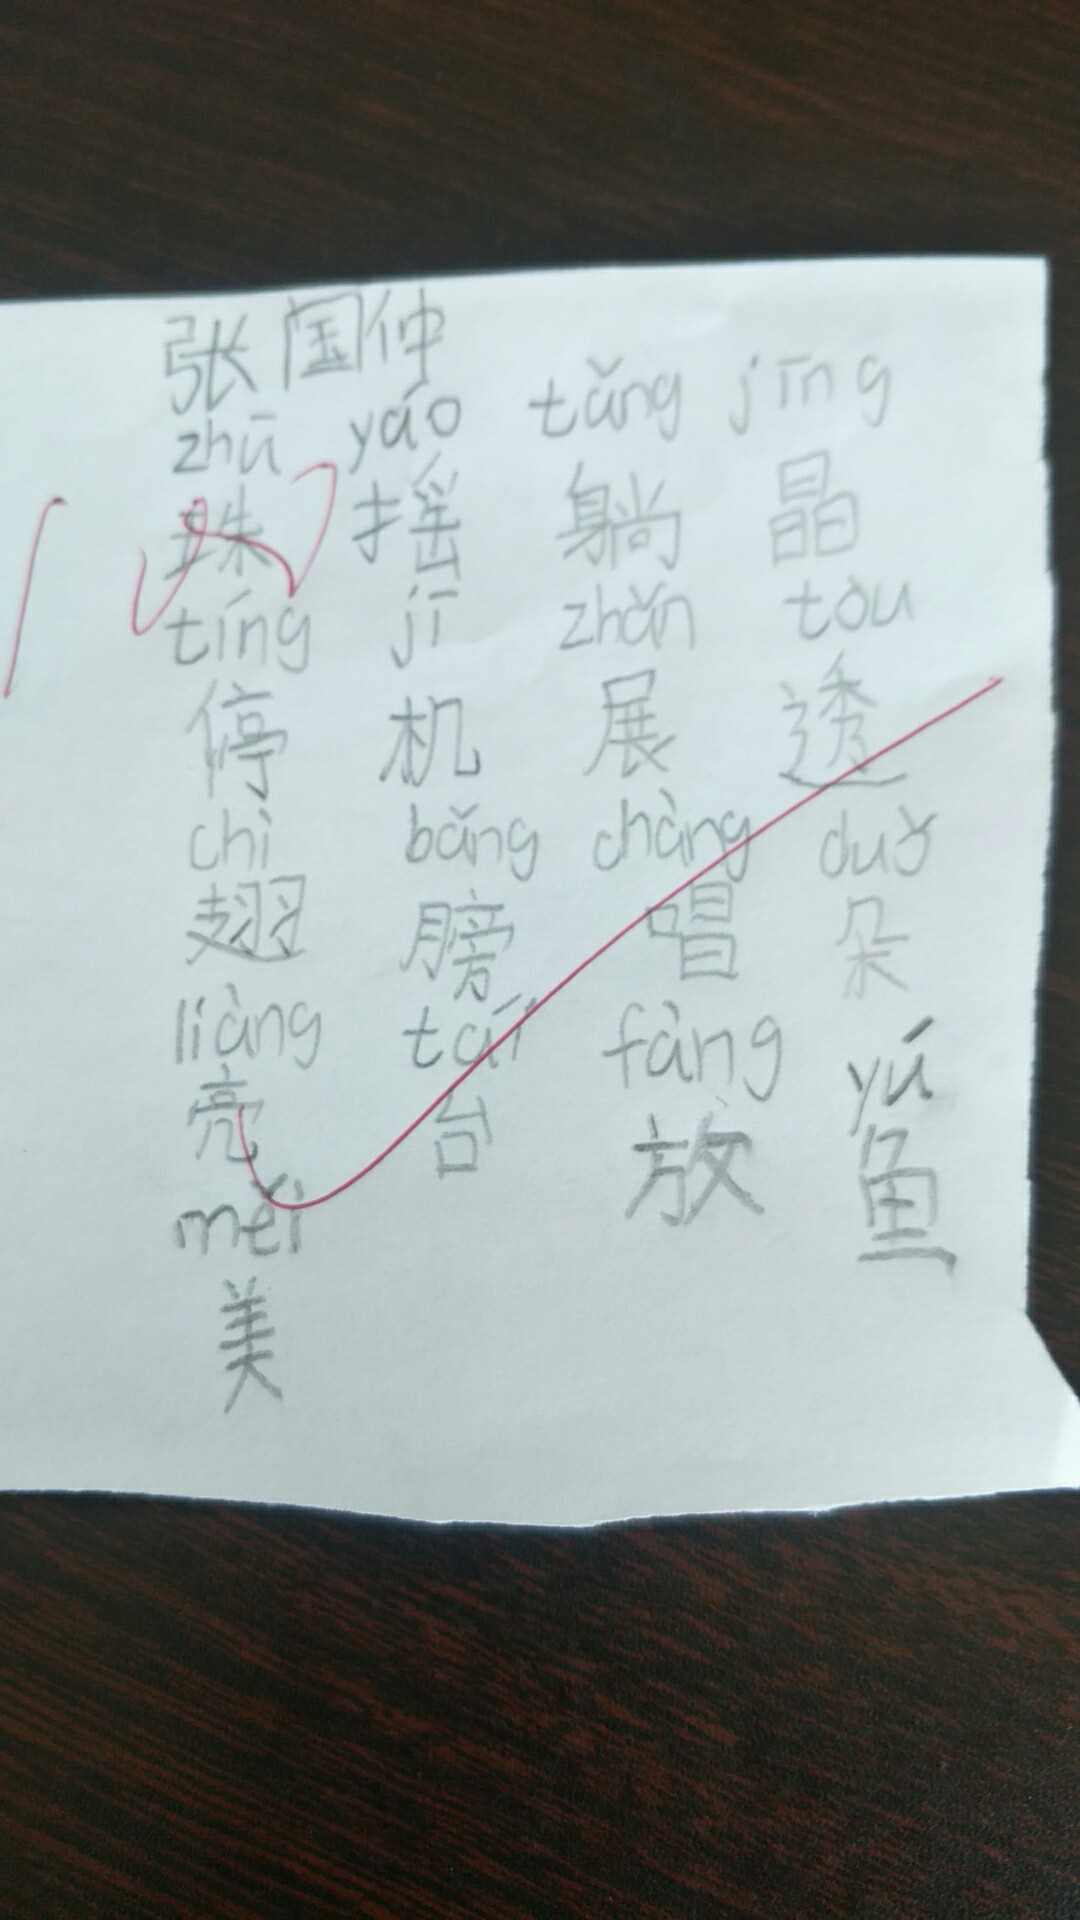 张国仲
zhū yáo tǎng jīng
珠 摇 躺 晶
tíng jī zhǎn tòu
停 机 展 透
chì bǎng chàng duǒ
翅 膀 唱 朵
liàng tái fàng yú
亮 台 放 鱼
měi
美